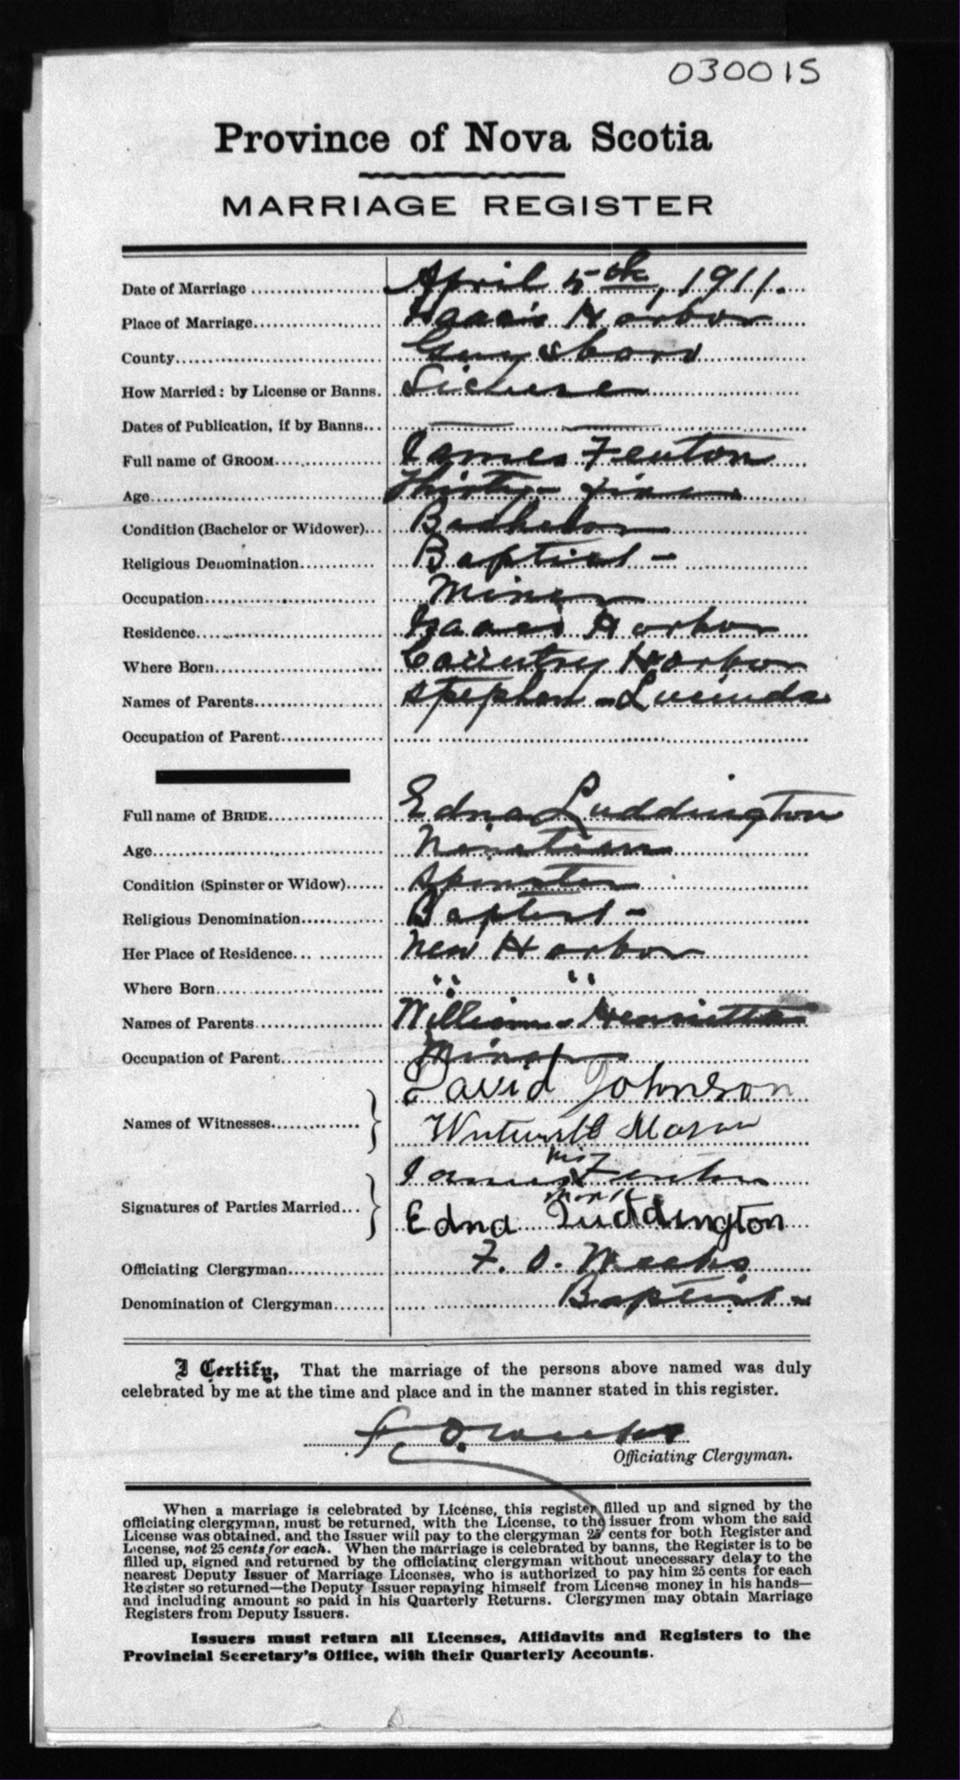 030015
Province of Nova Scotia
MARRIAGE REGISTER
Date of Marriage April 5th, 1911.
Place of Marriage Isaac's Harbor
County Guysboro
How Married: by License or Banns. License
Dates of Publication, if by Banns
Full name of GROOM James Fenton
Age Thirty-
Condition (Bachelor or Widower) Bachelor
Religious Denomination Baptist -
Occupation Miner
Residence Isaac's Harbor
Where Born Country Harbor
Names of Parents Stephen - Lucinda
Occupation of Parent
Full name of BRIDE Edna Luddington
Age Nineteen
Condition (Spinster or Widow) Spinster
Religious Denomination Baptist -
Her Place of Residence New Harbor
Where Born " "
Names of Parents William - Henrietta
Occupation of Parent Miner
Names of Witnesses David Johnson
Mason
his
Signatures of Parties Married James X Fenton
mark
Edna Luddington
Officiating Clergyman F. O. Weeks
Denomination of Clergyman Baptist -
I Certify, That the marriage of the persons above named was duly
celebrated by me at the time and place and in the manner stated in this register.
F. O. Weeks
Officiating Clergyman.
When a marriage is celebrated by License, this register filled up and signed by the
officiating clergyman, must be returned, with the License, to the issuer from whom the said
License was obtained, and the Issuer will pay to the clergyman 25 cents for both Register and
License, not 25 cents for each. When the marriage is celebrated by banns, the Register is to be
filled up, signed and returned by the officiating clergyman without unecessary delay to the
nearest Deputy Issuer of Marriage Licenses, who is authorized to pay him 25 cents for each
Register so returned—the Deputy Issuer repaying himself from License money in his hands—
and including amount so paid in his Quarterly Returns. Clergymen may obtain Marriage
Registers from Deputy Issuers.
Issuers must return all Licenses, Affidavits and Registers to the
Provincial Secretary's Office, with their Quarterly Accounts.